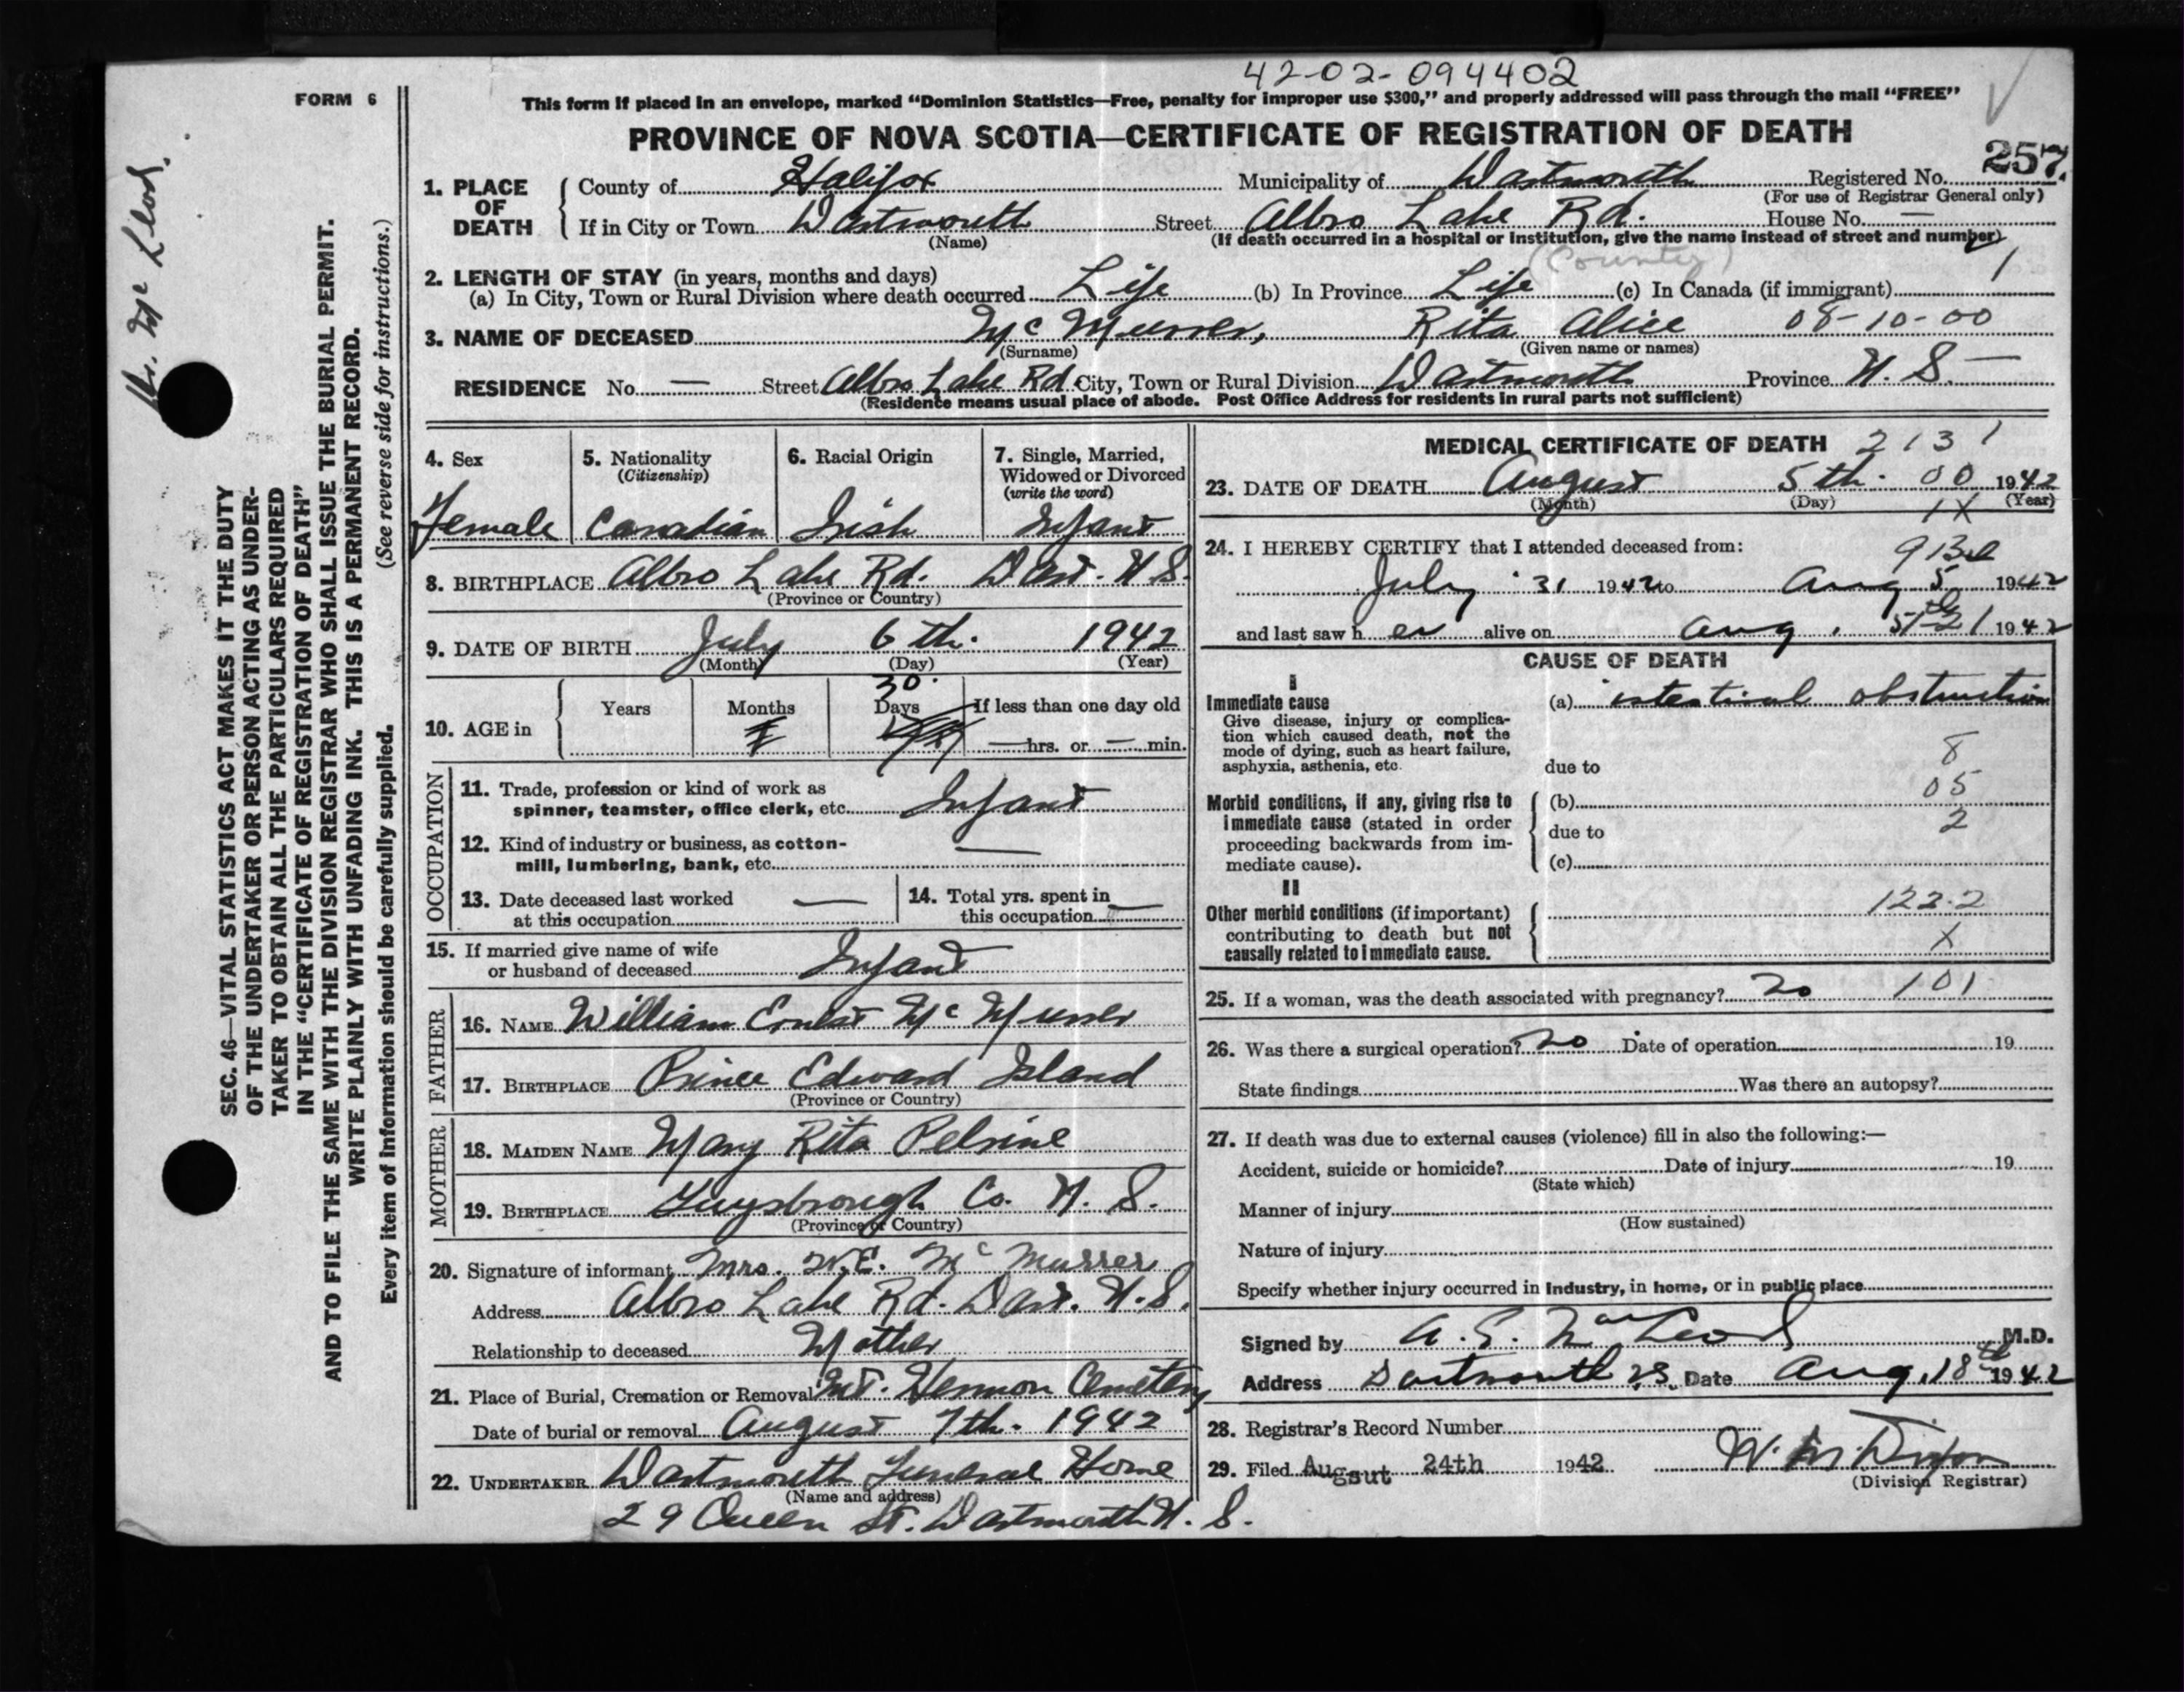 42-02-094402
FORM 6
This form if placed in an envelope, marked “Dominion Statistics—Free, penalty for improper use $300,” and properly addressed will pass through the mail “FREE”
PROVINCE OF NOVA SCOTIA—CERTIFICATE OF REGISTRATION OF DEATH
257.
1. PLACE OF DEATH County of Halifax Municipality of Dartmouth Registered No.
(For use of Registrar General only)
If in City or Town Dartmouth Street Albro Lake Rd. House No. —
(Name) (If death occurred in a hospital or institution, give the name instead of street and number)
(County) 1
2. LENGTH OF STAY (in years, months and days)
(a) In City, Town or Rural Division where death occurred Life (b) In Province Life (c) In Canada (if immigrant)
3. NAME OF DECEASED Mc Murrer, Rita Alice 08-10-00
(Surname) (Given name or names)
RESIDENCE No. — Street Albro Lake Rd. City, Town or Rural Division Dartmouth Province N. S. —
(Residence means usual place of abode. Post Office Address for residents in rural parts not sufficient)
4. Sex
Female
5. Nationality
(Citizenship)
Canadian
6. Racial Origin
Irish
7. Single, Married,
Widowed or Divorced
(write the word)
Infant
8. BIRTHPLACE Albro Lake Rd. Dart. N.S.
(Province or Country)
9. DATE OF BIRTH July 6th. 1942
(Month) (Day) (Year)
10. AGE in Years Months 30. Days If less than one day old
— hrs. or — min.
OCCUPATION
11. Trade, profession or kind of work as
spinner, teamster, office clerk, etc. Infant
12. Kind of industry or business, as cotton-
mill, lumbering, bank, etc. —
13. Date deceased last worked
at this occupation —
14. Total yrs. spent in
this occupation —
15. If married give name of wife
or husband of deceased Infant
FATHER
16. NAME William Ernest Mc Murrer
17. BIRTHPLACE Prince Edward Island
(Province or Country)
MOTHER
18. MAIDEN NAME Mary Rita Pelrine
19. BIRTHPLACE Guysbrough Co. N. S.
(Province or Country)
20. Signature of informant Mrs. W.E. Mc Murrer
Address Albro Lake Rd. Dart. N.S.
Relationship to deceased Mother
21. Place of Burial, Cremation or Removal Mt. Hermon Cemetery
Date of burial or removal August 7th. 1942
22. UNDERTAKER Dartmouth Funeral Home
(Name and address)
29 Queen St. Dartmouth N. S.
MEDICAL CERTIFICATE OF DEATH 2131
23. DATE OF DEATH August 5th. 00 1942
(Month) (Day) (Year)
1X
24. I HEREBY CERTIFY that I attended deceased from:
July 31 1942 to Aug 5 1942
and last saw her alive on Aug. 5th 1942
CAUSE OF DEATH
I
Immediate cause
Give disease, injury or complica-
tion which caused death, not the
mode of dying, such as heart failure,
asphyxia, asthenia, etc.
(a) intestinal obstruction
8
due to
05
Morbid conditions, if any, giving rise to
immediate cause (stated in order
proceeding backwards from im-
mediate cause).
(b)
2
due to
(c)
II
Other morbid conditions (if important)
contributing to death but not
causally related to immediate cause.
122.2
X
25. If a woman, was the death associated with pregnancy? no 101
26. Was there a surgical operation? no Date of operation 19
State findings Was there an autopsy?
27. If death was due to external causes (violence) fill in also the following:—
Accident, suicide or homicide? Date of injury 19
(State which)
Manner of injury
(How sustained)
Nature of injury
Specify whether injury occurred in industry, in home, or in public place
Signed by A. S. MacLeod M.D.
Address Dartmouth N.S. Date Aug. 18th 1942
28. Registrar's Record Number
29. Filed Augsut 24th 1942
(Division Registrar)
SEC. 46—VITAL STATISTICS ACT MAKES IT THE DUTY
OF THE UNDERTAKER OR PERSON ACTING AS UNDER-
TAKER TO OBTAIN ALL THE PARTICULARS REQUIRED
IN THE “CERTIFICATE OF REGISTRATION OF DEATH”
AND TO FILE THE SAME WITH THE DIVISION REGISTRAR WHO SHALL ISSUE THE BURIAL PERMIT.
WRITE PLAINLY WITH UNFADING INK. THIS IS A PERMANENT RECORD.
(See reverse side for instructions.)
Every item of information should be carefully supplied.
Mc Leod.